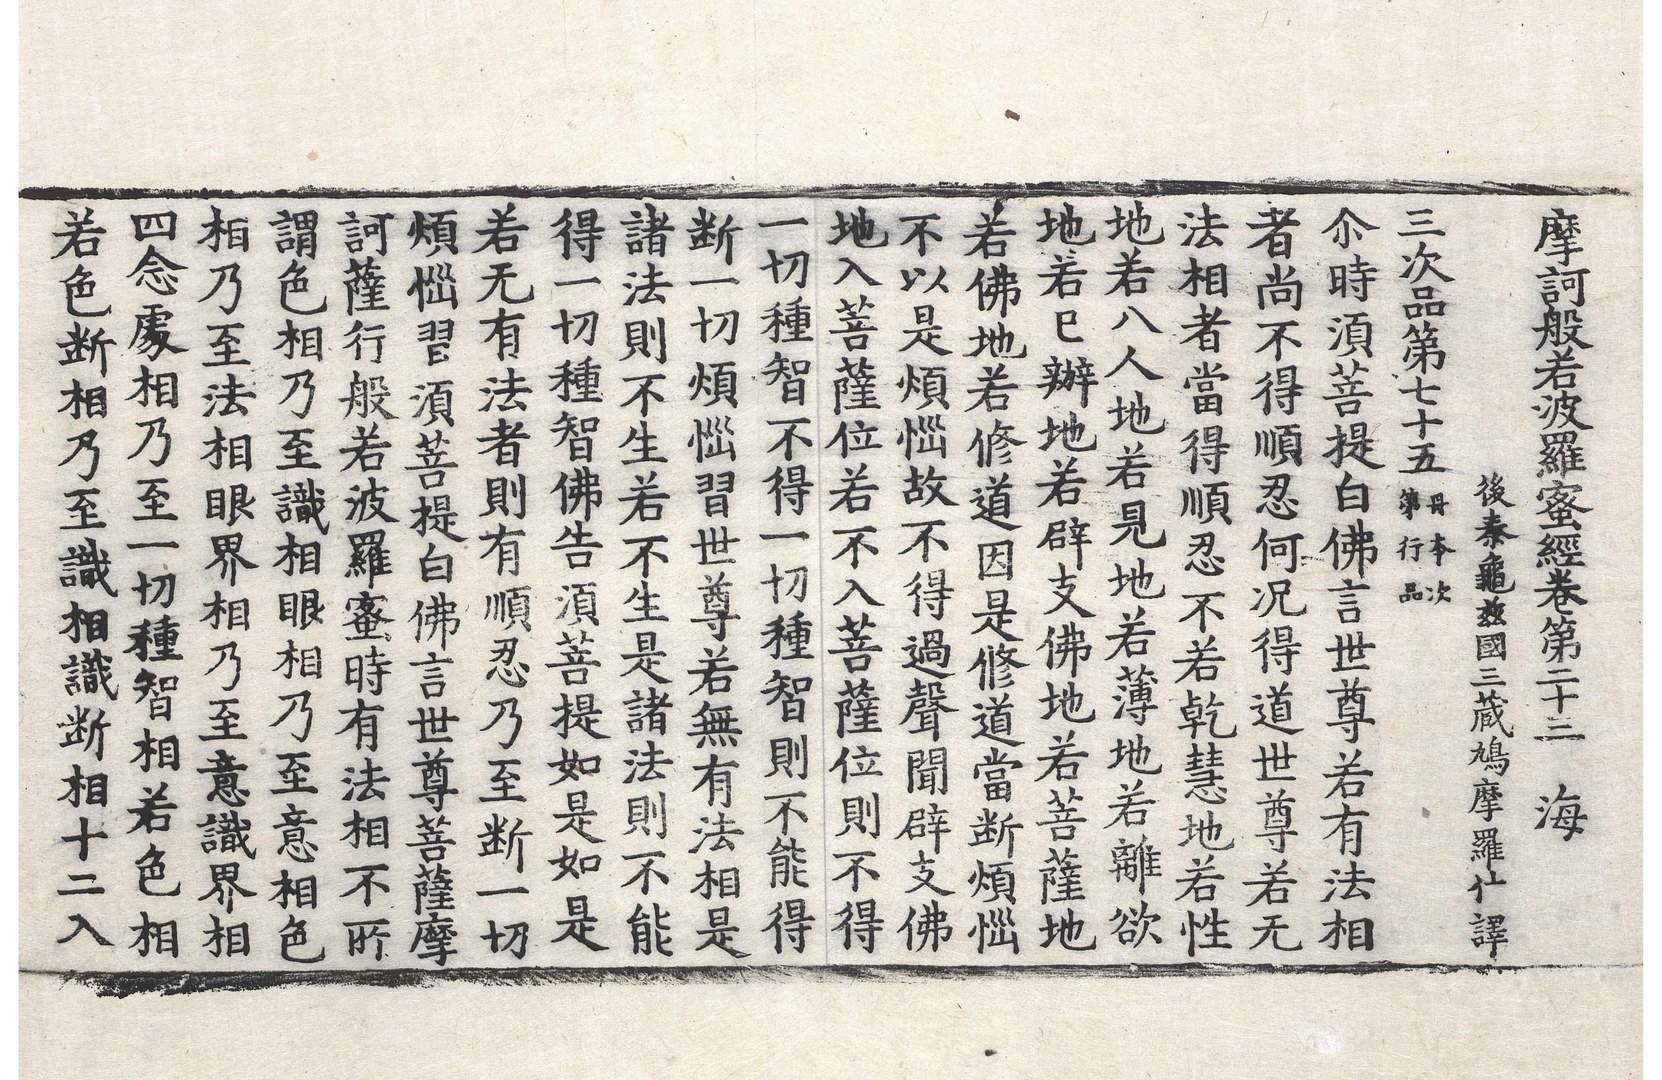 摩訶般若波羅蜜經卷第二十三　海
後秦龜茲國三藏鳩摩羅什譯
三次品第七十五 丹本次第行品
尒時湏菩提白佛言世尊若有法相
者尚不得順忍何況得道世尊若无
法相者當得順忍不若乾慧地若性
地若八人地若見地若薄地若離欲
地若已辦地若辟支佛地若菩薩地
若佛地若修道因是修道當断煩惱
不以是煩惱故不得過聲聞辟支佛
地入菩薩位若不入菩薩位則不得
一切種智不得一切種智則不能得
断一切煩惱習世尊若無有法相是
諸法則不生若不生是諸法則不能
得一切種智佛告湏菩提如是如是
若无有法者則有順忍乃至断一切
煩惱習湏菩提白佛言世尊菩薩摩
訶薩行般若波羅蜜時有法相不所
謂色相乃至識相眼相乃至意相色
相乃至法相眼界相乃至意識界相
四念處相乃至一切種智相若色相
若色断相乃至識相識断相十二入